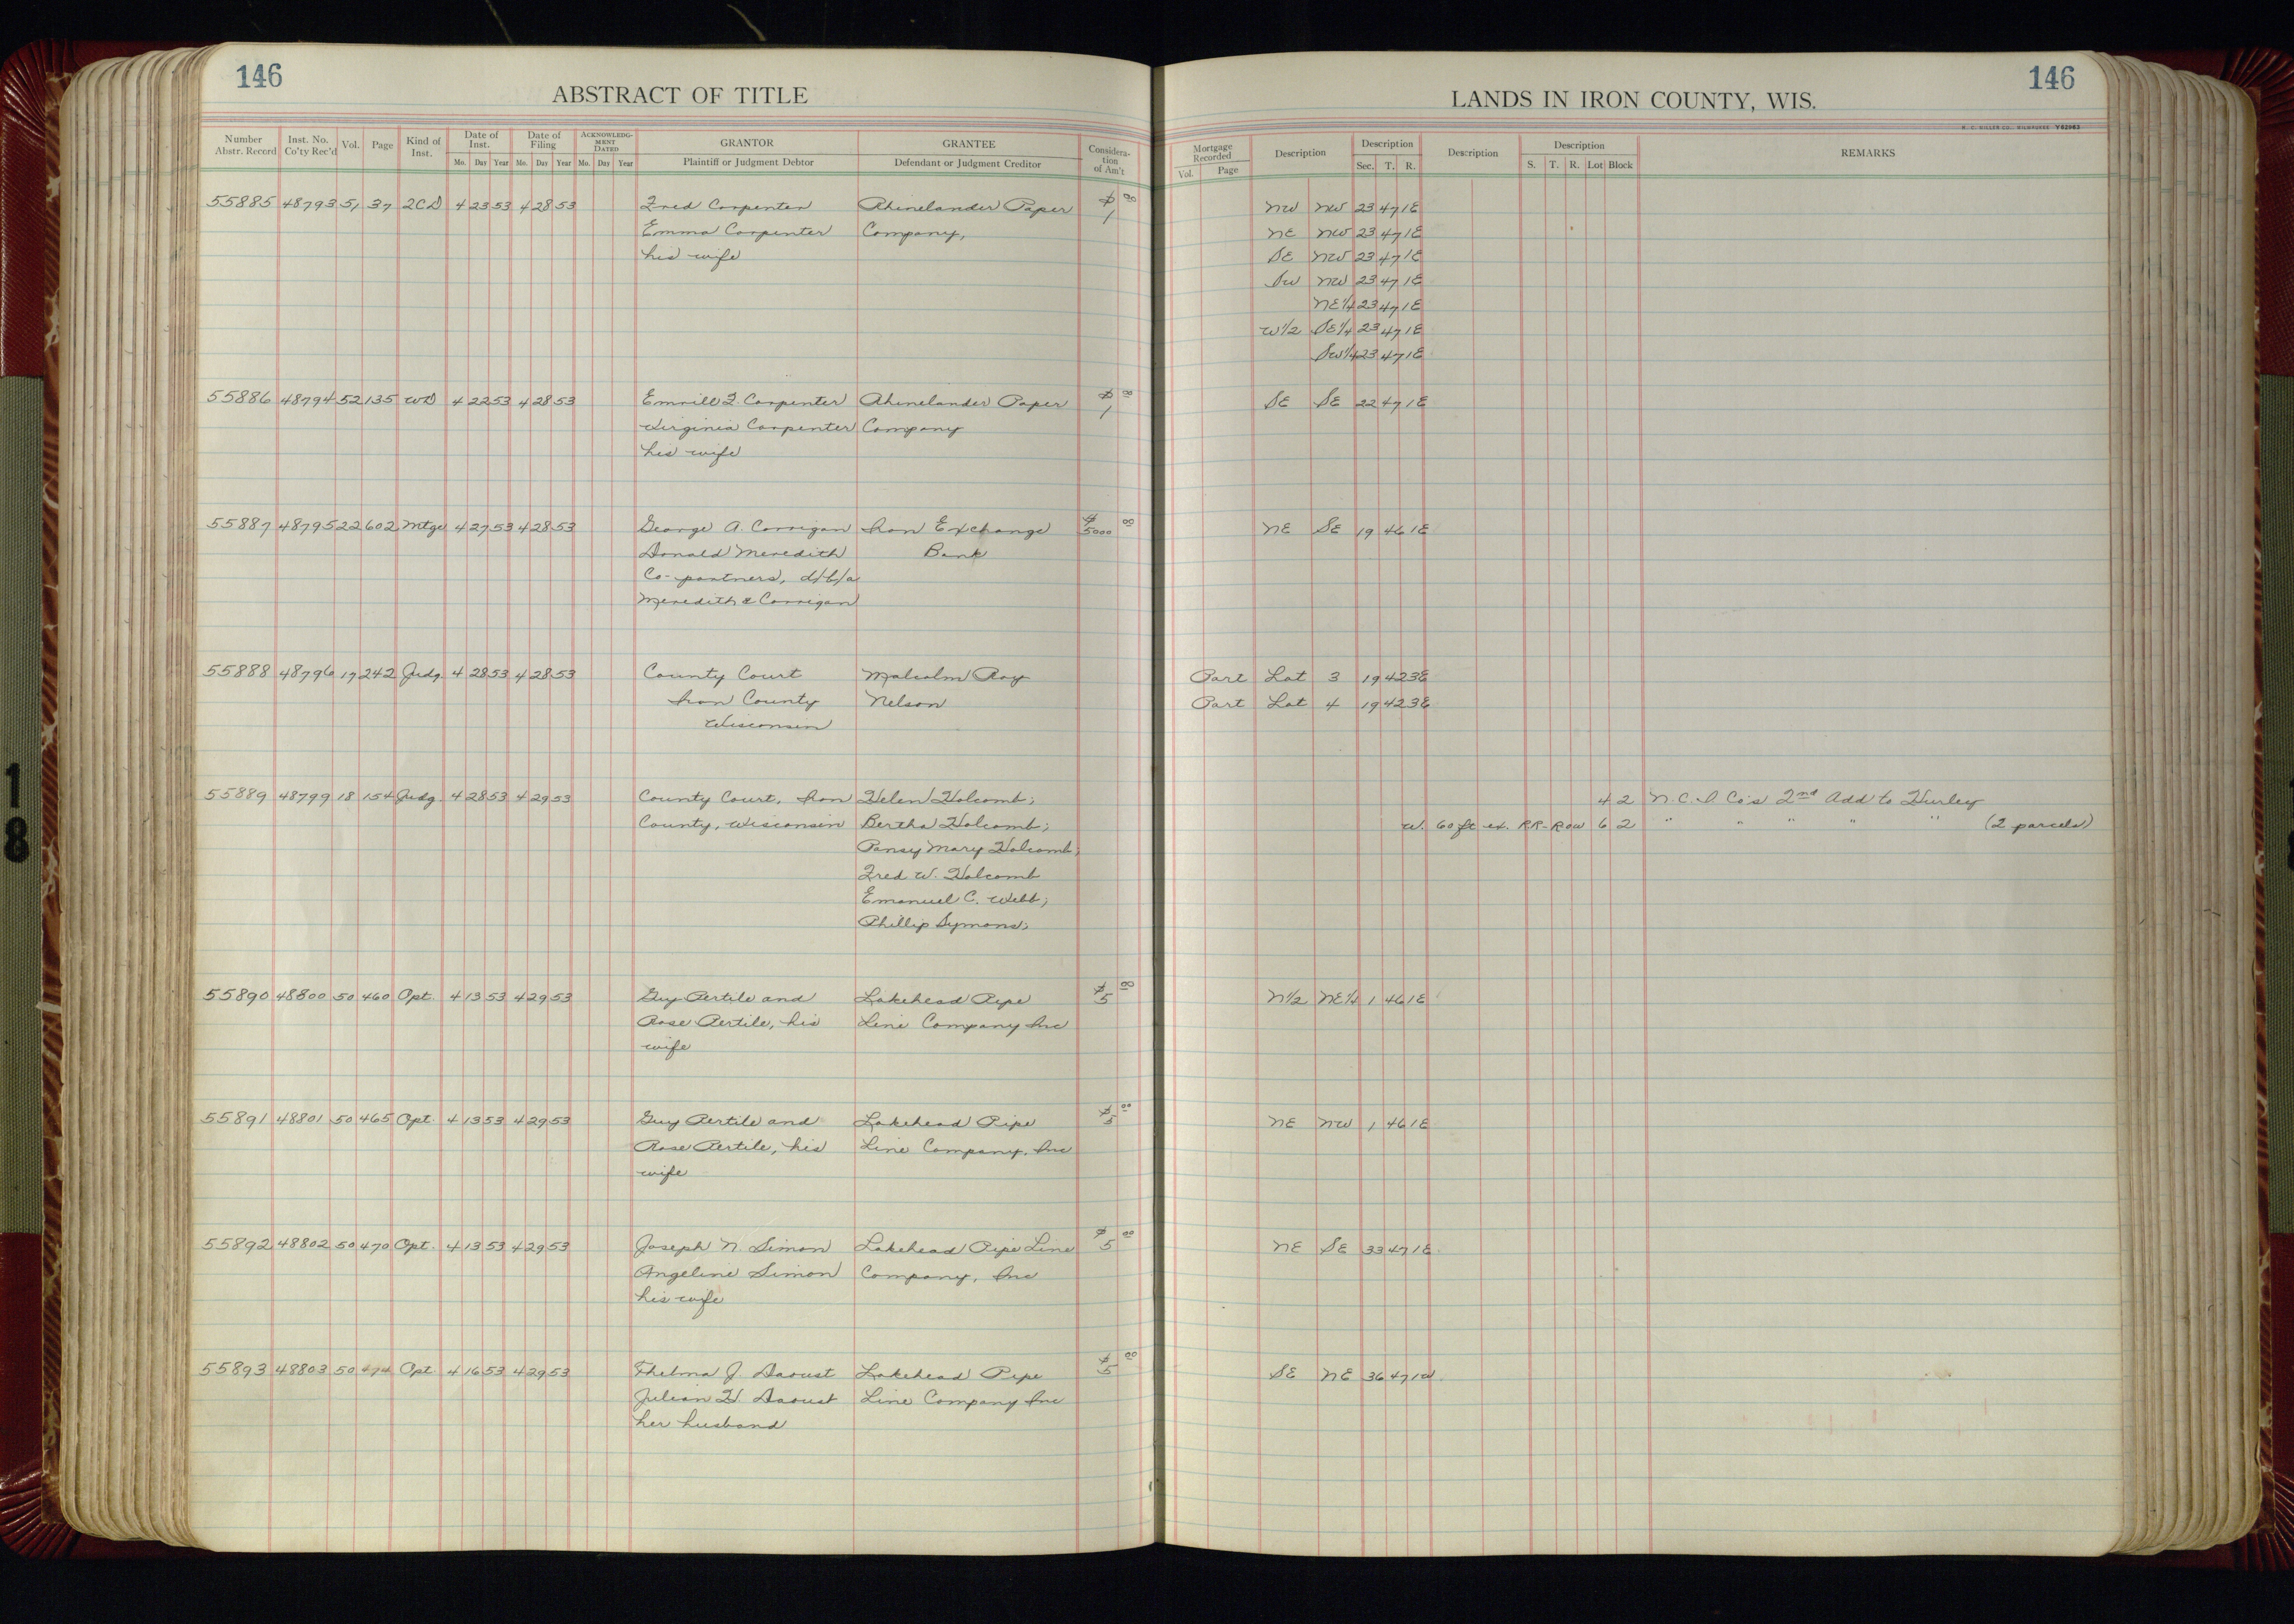 146
ABSTRACT OF TITLE
Number Abstr. Record Inst. No. Co'ty Rec'd Vol. Page Kind of Inst. Date of Inst. Date of Filing ACKNOWLEDGMENT DATED GRANTOR GRANTEE Consideration of Am't
Mo. Day Year Mo. Day Year Mo. Day Year Plaintiff or Judgment Debtor Defendant or Judgment Creditor
55885 48793 51 37 2CD 4 23 53 4 28 53 Fred Carpenter Rhinelander Paper $ 1 00
Emma Carpenter Company,
his wife
55886 48794 52 135 WD 4 22 53 4 28 53 F. Carpenter Rhinelander Paper $ 1 00
Virginia Carpenter Company
his wife
55887 48795 22 602 Mtge 4 27 53 4 28 53 George A. Corrigan Iron Exchange $ 5000 00
Donald Meredith Bank
Co-partners, d/b/a
Meredith & Corrigan
55888 48796 19 242 Judg. 4 28 53 4 28 53 County Court Malcolm Roy
Iron County Nelson
Wisconsin
55889 48799 18 154 Judg. 4 28 53 4 29 53 County Court, Iron Helen Holcomb;
County, Wisconsin Bertha Holcomb;
Pansy Mary Holcomb;
Fred W. Holcomb
Emanuel C. Webb;
Phillip Symons;
55890 48800 50 460 Opt. 4 13 53 4 29 53 Guy Pertile and Lakehead Pipe $ 5 00
Rose Pertile, his Line Company Inc
wife
55891 48801 50 465 Opt. 4 13 53 4 29 53 Guy Pertile and Lakehead Pipe $ 5 00
Rose Pertile, his Line Company, Inc
wife
55892 48802 50 470 Opt. 4 13 53 4 29 53 Joseph N. Simon Lakehead Pipe Line $ 5 00
Angeline Simon Company, Inc
his wife
55893 48803 50 474 Opt. 4 16 53 4 29 53 Thelma J. Daoust Lakehead Pipe $ 5 00
Julian H. Daoust Line Company Inc
her husband
146
LANDS IN IRON COUNTY, WIS.
H. C. MILLER CO., MILWAUKEE Y62963
Mortgage Recorded Description Description Description Description REMARKS
Vol. Page Sec. T. R. S. T. R. Lot Block
NW NW 23 47 1E
NE NW 23 47 1E
SE NW 23 47 1E
SW NW 23 47 1E
NE1/4 23 47 1E
W1/2 SE1/4 23 47 1E
SW1/4 23 47 1E
SE SE 22 47 1E
NE SE 19 46 1E
Part Lot 3 19 42 3E
Part Lot 4 19 42 3E
4 2 N.C.I. Co's 2nd Add to Hurley
W. 60 ft ex. RR-ROW 6 2 " " " " " (2 parcels)
N1/2 NE1/4 1 46 1E
NE NW 1 46 1E
NE SE 33 47 1E
SE NE 36 47 1W
1
8